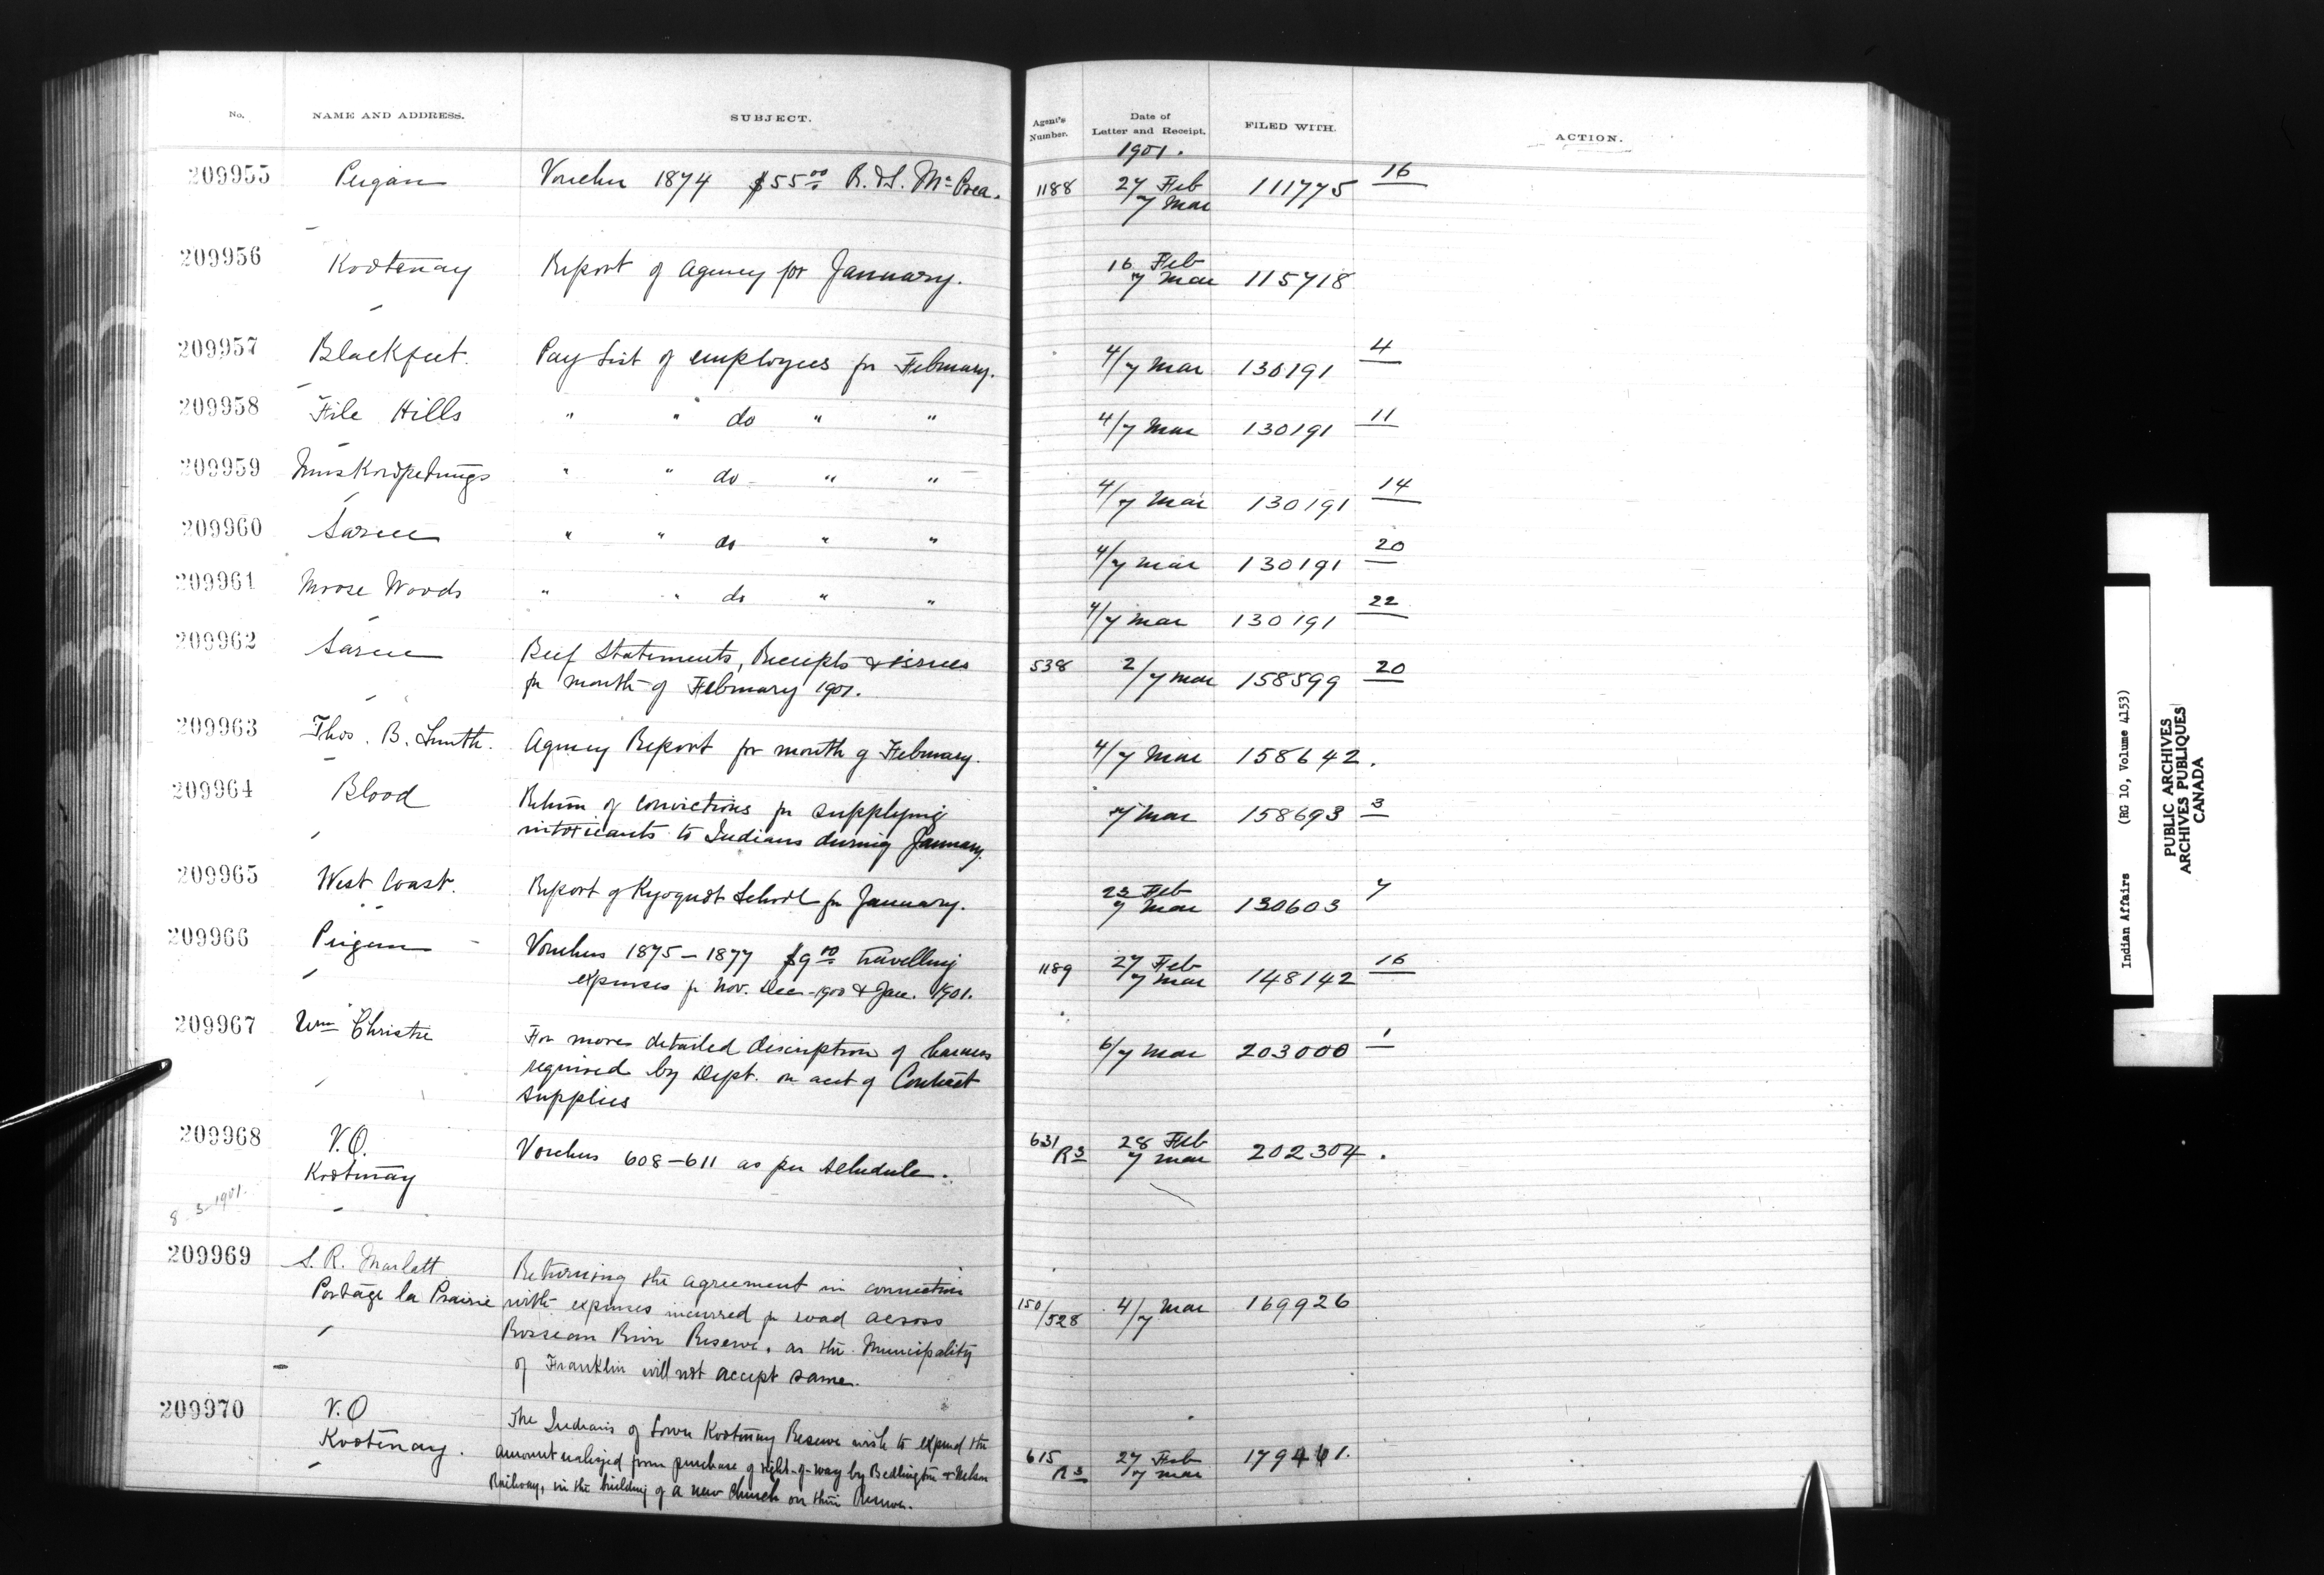 No. NAME AND ADDRESS. SUBJECT. Agent's Number. Date of Letter and Receipt. FILED WITH. ACTION.
1901.
209955 Peigan Voucher 1874 $55.00 R. & S. McCrea. 1188 27 Feb 7 Mar 111775 16
209956 Kootenay Report of Agency for January. 16 Feb 7 Mar 115718
209957 Blackfeet. Pay List of employees for February. 4/7 Mar 130191 4
209958 File Hills " " do " " 4/7 Mar 130191 11
209959 Muskowpetungs " " do " " 4/7 Mar 130191 14
209960 Sarcee " " do " " 4/7 Mar 130191 20
209961 Moose Woods " " do " " 4/7 Mar 130191 22
209962 Sarcee Beef Statements, Receipts & issues 538 2/7 Mar 158599 20
for month of February 1901.
209963 Thos. B. Smith. Agency Report for month of February. 4/7 Mar 158642.
209964 Blood Return of convictions for supplying 7 Mar 158693 3
intoxicants to Indians during January.
209965 West Coast. Report of Kyoquot School for January. 23 Feb 7 Mar 130603 7
209966 Peigan Vouchers 1875-1877 $9.00 travelling 1189 27 Feb 7 Mar 148142 16
expenses for Nov. Dec-1900 & Jan. 1901.
209967 Wm Christie For more detailed discription of harness 6/7 Mar 203000 1
required by Dept. on acct of Contract
supplies
209968 V.O. Vouchers 608-611 as per schedule. 631 R3 28 Feb 7 Mar 202304.
Kootenay
8-3-1901.
209969 S. R. Marlatt Returning the agreement in connection
Portage la Prairie with expenses incurred for road across 150/528 4/7 Mar 169926
Rosseau River Reserve, as the Municipality
of Franklin will not accept same.
209970 V.O The Indians of Lower Kootenay Reserve wish to expend the
Kootenay. amount realized from purchase of right-of-way by Bedlington & Nelson 615 R3 27 Feb 7 Mar 179461.
Railway, in the building of a new Church on their Reserve.
Indian Affairs (RG 10, Volume 4153)
PUBLIC ARCHIVES
ARCHIVES PUBLIQUES
CANADA